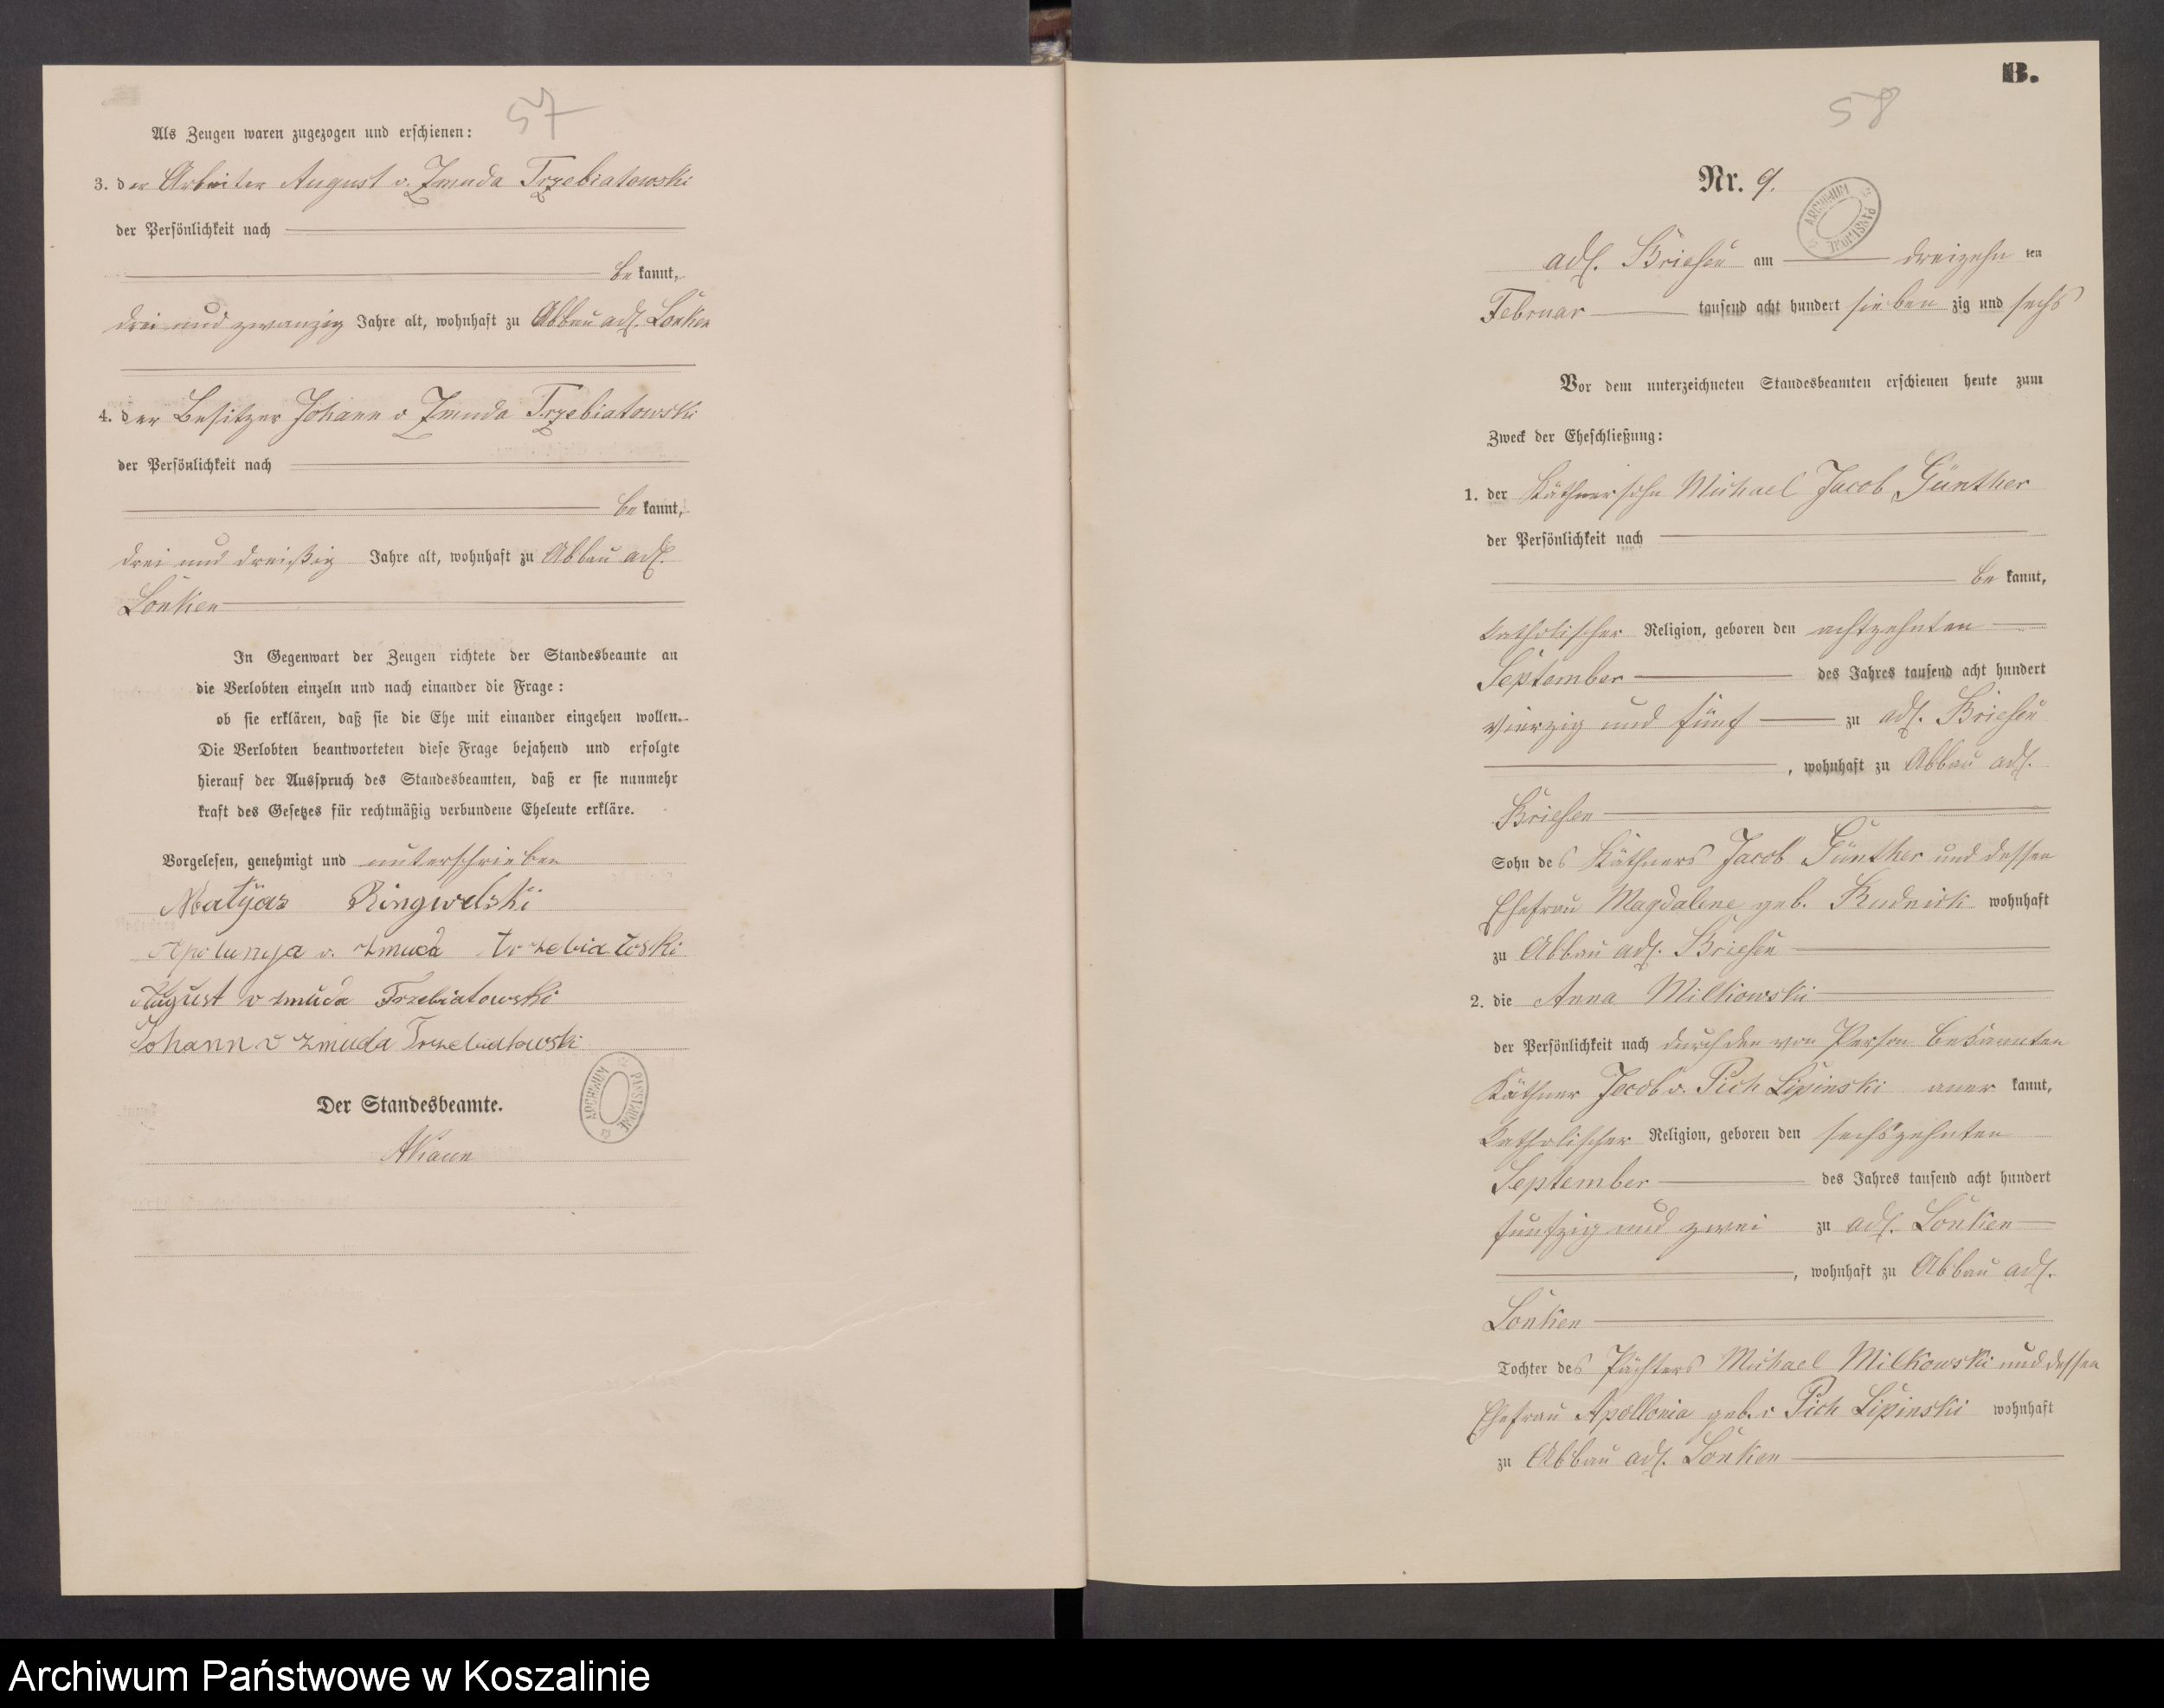 57
Als Zeugen waren zugezogen und erschienen:
3. der Arbeiter August v. Zmuda Trzebiatowski
der Persönlichkeit nach
be kannt,
drei und zwanzig Jahre alt, wohnhaft zu Abbau adl. Lonken
4. der Besitzer Johann v Zmuda Trzebiatowski
der Persönlichkeit nach
be kannt,
drei und dreißig Jahre alt, wohnhaft zu Abbau adl.
Lonken
In Gegenwart der Zeugen richtete der Standesbeamte an
die Verlobten einzeln und nach einander die Frage:
ob sie erklären, daß sie die Ehe mit einander eingehen wollen.
Die Verlobten beantworteten diese Frage bejahend und erfolgte
hierauf der Ausspruch des Standesbeamten, daß er sie nunmehr
kraft des Gesetzes für rechtmäßig verbundene Eheleute erkläre.
Vorgelesen, genehmigt und unterschrieben
Matyas Ringwelski
v. zmuda
August v zmuda Trzebiatowski
Johann v zmuda Trzebiatowski
Der Standesbeamte.
ARCHIWUM PAŃSTWOWE
B.
58
Nr. 9.
ARCHIWUM PAŃSTWOWE
adl. Briesen am dreizehn ten
Februar tausend acht hundert sieben zig und sechs
Vor dem unterzeichneten Standesbeamten erschienen heute zum
Zweck der Eheschließung:
1. der Käthnersohn Michael Jacob Günther
der Persönlichkeit nach
be kannt,
katholischer Religion, geboren den achtzehnten
September des Jahres tausend acht hundert
vierzig und fünf zu adl. Briesen
, wohnhaft zu Abbau adl.
Briesen
Sohn des Käthners Jacob Günther und dessen
Ehefrau Magdalene geb. Rudnick wohnhaft
zu Abbau adl. Briesen
2. die Anna Milkowski
der Persönlichkeit nach durch den von Person bekannten
Käthner Jacob v. Pich Lipinski aner kannt,
katholischer Religion, geboren den sechszehnten
September des Jahres tausend acht hundert
funfzig und zwei zu adl. Lonken
, wohnhaft zu Abbau adl.
Lonken
Tochter des Pächters Michael Milkowski und dessen
Ehefrau Apollonia geb. v Pich Lipinski wohnhaft
zu Abbau adl. Lonken
Archiwum Państwowe w Koszalinie